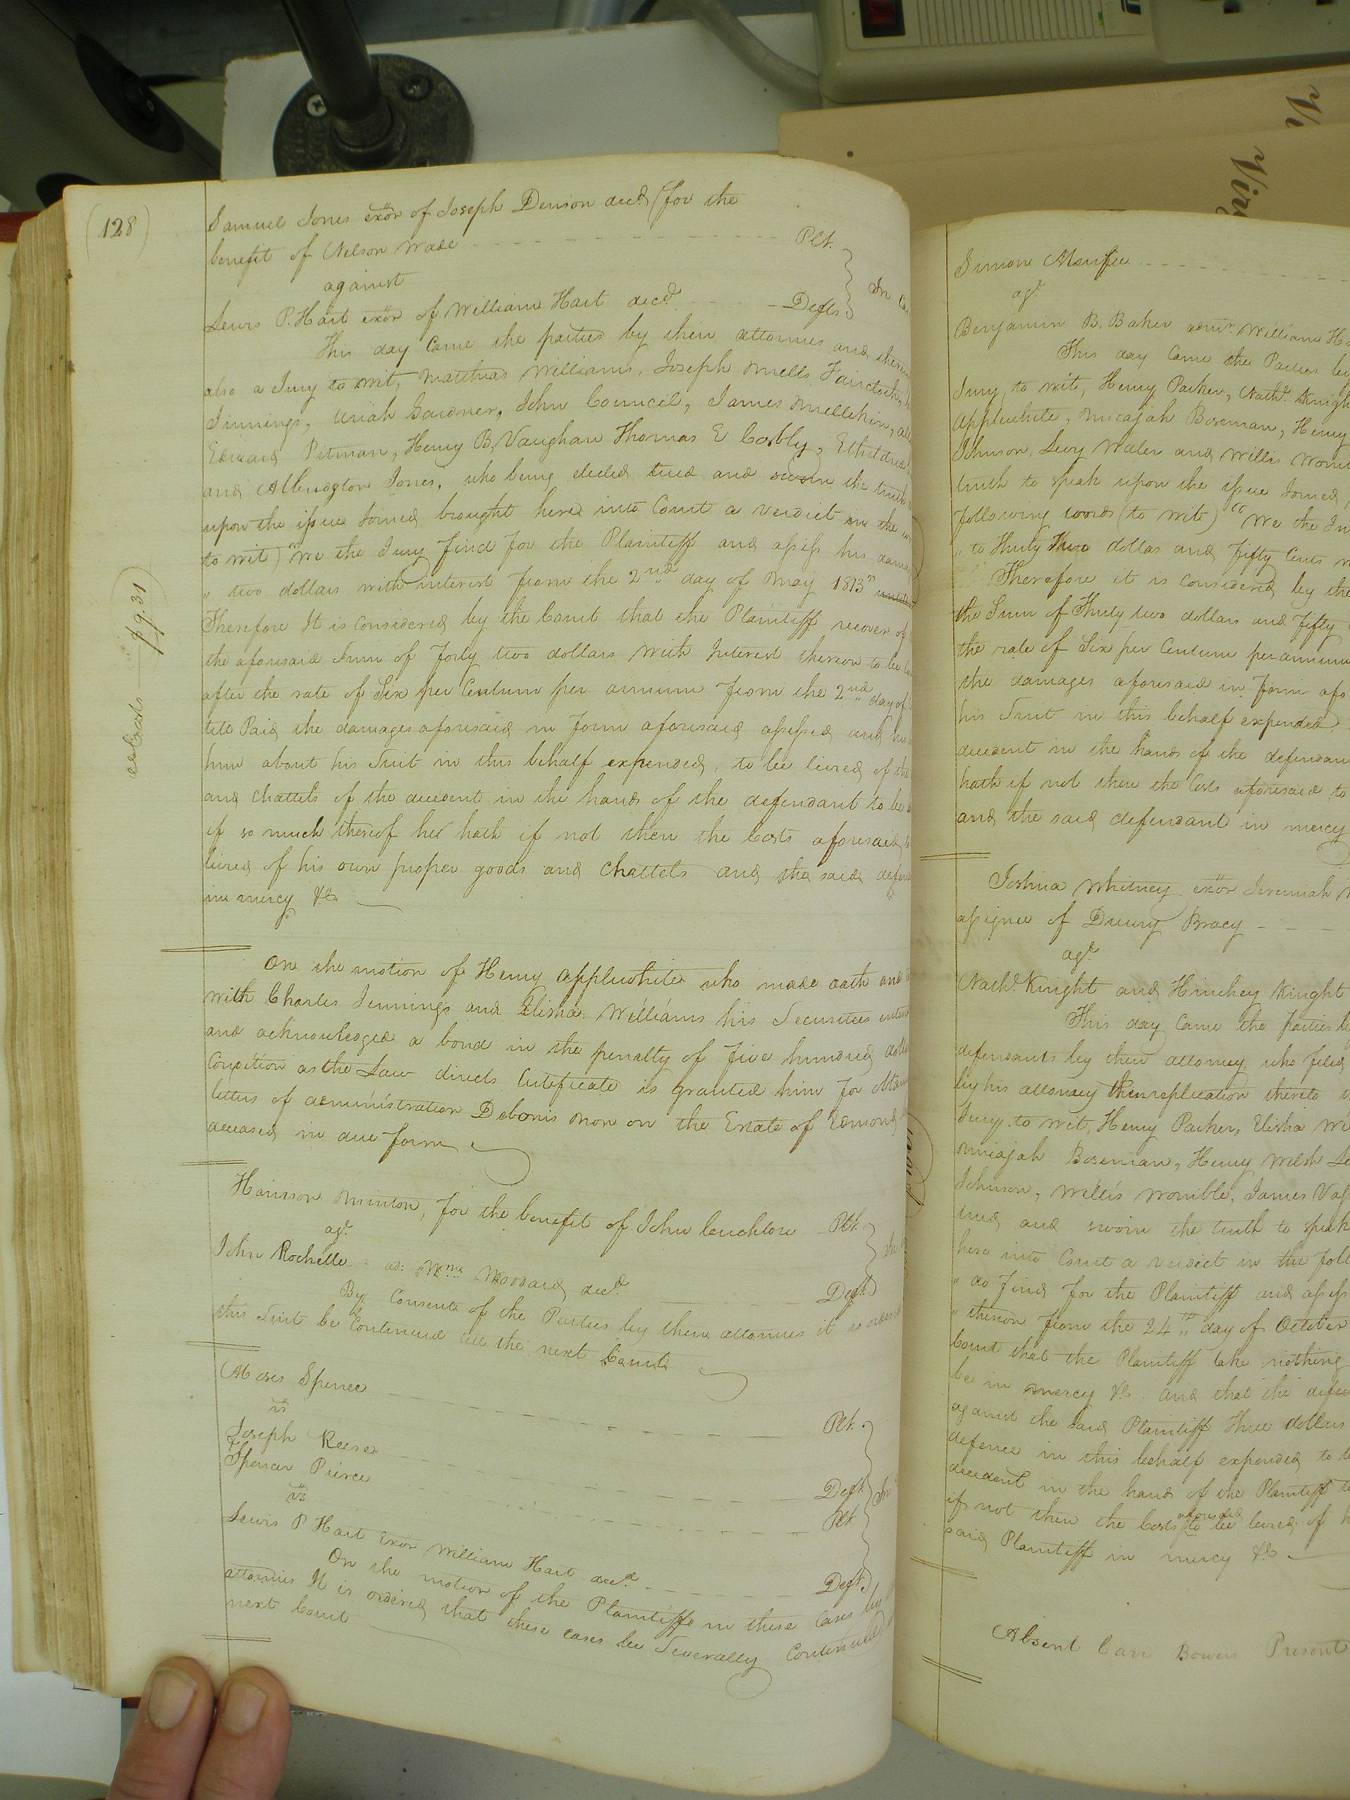 (128)
Samuel Jones exor of Joseph Denson decd (for the
benefit of Nelson Wade Plt.
against
Lewis P. Hart exor of William Hart decd. Deft
This day Came the parties by their attornies and
also a Jury to wit, Matthias Williams, Joseph Mells
Jinnings, Uriah Gardner, John Council, James
Edward Pitman, Henry B. Vaughan Thomas E Cosbly, Etheldred
and Albridgton Jones, who being elected tried and sworn the truth
upon the issue Joined brought here into Court a verdict in the
to wit) "We the Jury find for the Plaintiff and assess his
" two dollars with interest from the 2nd day of May 1813"
Therefore It is considered by the Court that the Plaintiff recover
the aforesaid Sum of Forty two dollars with Interest thereon to be
after the rate of Six per Centum per annum from the 2nd day of
till Paid the damages aforesaid in form aforesaid assessed and
him about his Suit in this behalf expended, to be levied of the
and Chattels of the decedent in the hands of the defendant to be
if so much thereof he hath if not then the Costs aforesaid
levied of his own proper goods and Chattels and the said
in mercy &c
pg. 31
On the motion of Henry Applewhite who made oath and
with Charles Jennings and Elisha Williams his Securities
and acknowledged a bond in the penalty of Five hundred
Condition as the Law directs Certificate is granted him for
letters of administration Debonis non on the Estate of Edmond
deceased in due form
Harrison Minton, for the benefit of John Plt.
agt.
John Rochelle ad: Woodard decd. Deft
By Consent of the Parties by their attornies it is
this Suit be Continued till the next Court
Moses Spence Plt.
vs
Joseph Reese Deft
Spencer Pierce Plt
vs
Lewis P Hart Exor William Hart decd. Deft.
On the motion of the Plaintiffs in these Cases by
attornies It is ordered that these cases be Severally Continued
next Court
Simon
agt
Benjamin B. Baker admr William
This day Came the Parties by
Jury, to wit, Henry Parker, Nathl Knight
Applewhite, Micajah Boseman, Henry
Johnson, Levy Waller and Willis
truth to speak upon the issue Joined
following words (to wit) "We the
" to Thirty two dollars and fifty Cents
Therefore it is considered by the
the Sum of Thirty two dollars and fifty
the rate of Six per Centum per annum
the damages aforesaid in form
his Suit in this behalf expended
decedent in the hands of the
hath if not then the Costs aforesaid to
and the said defendant in mercy
Joshua Whitney exor Jeremiah
assignee of Drury Bracy
agt
Nathl. Knight and Hinchey Knight
This day Came the parties
defendants by their attorney who filed
by his attorney replication thereto
Jury to wit, Henry Parker, Elisha
Micajah Boseman, Henry Welsh
Johnson, Willis Womble, James
tried and sworn the truth to speak
here into Court a verdict in the
" do find for the Plaintiff and assess
" thereon from the 24th day of October
Court that the Plaintiff take nothing
be in mercy &c and that the
against the said Plaintiff three dollars
defence in this behalf expended to
decedent in the hands of the Plaintiff
if not then the Costs aforesaid to be levied of
said Plaintiff in mercy &c
Absent Carr Bowers Present